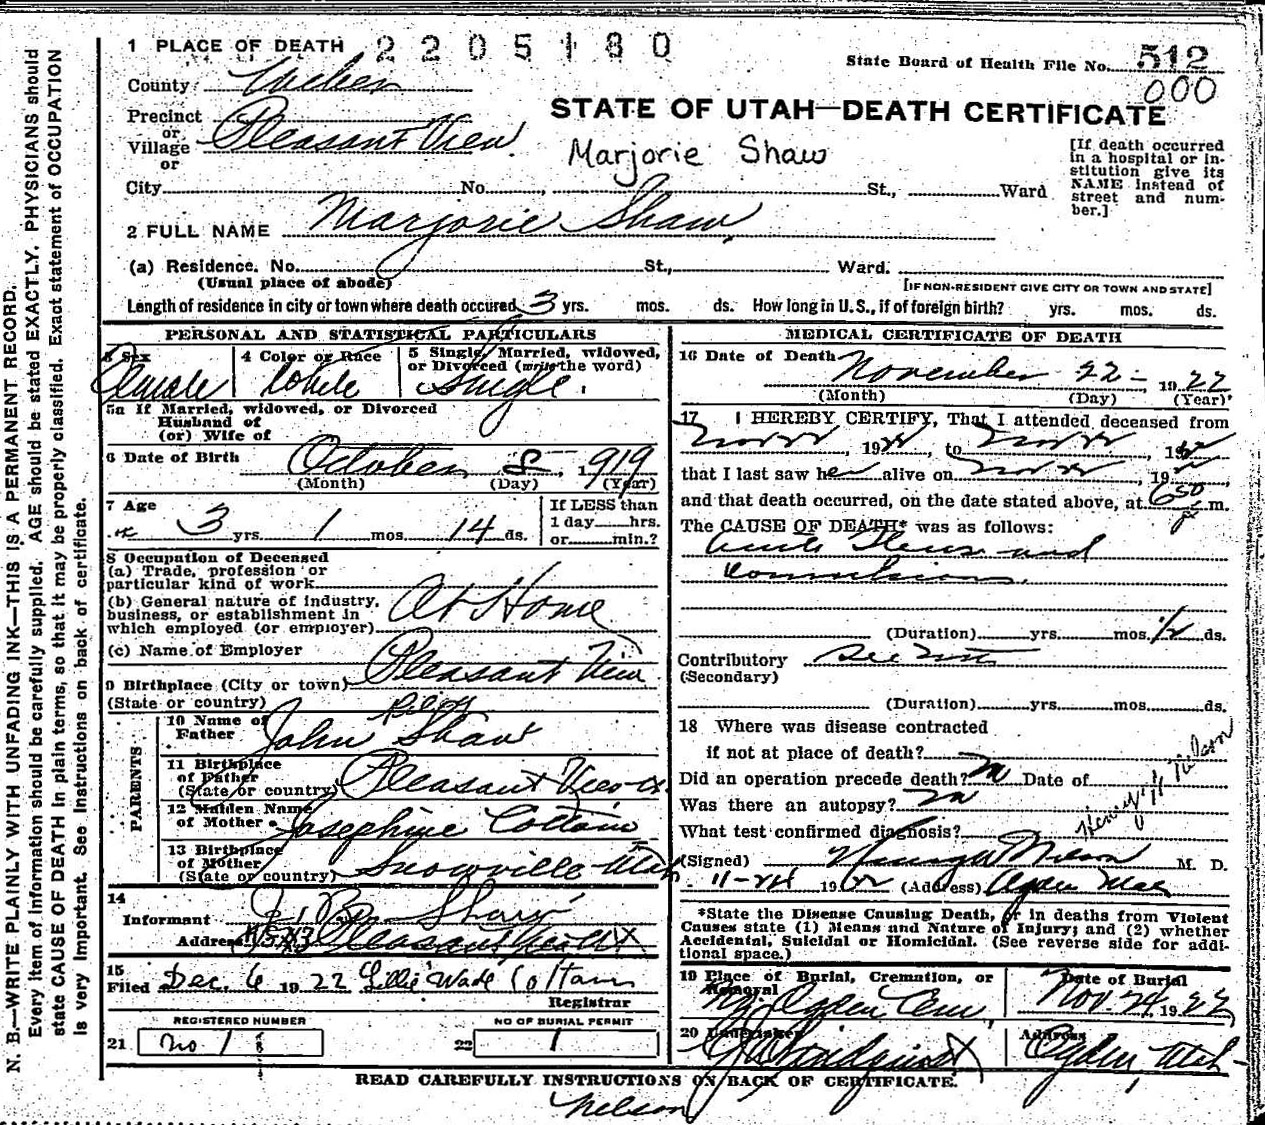 N. B.—WRITE PLAINLY WITH UNFADING INK—THIS IS A PERMANENT RECORD.
Every item of information should be carefully supplied. AGE should be stated EXACTLY. PHYSICIANS should
state CAUSE OF DEATH in plain terms, so that it may be properly classified. Exact statement of OCCUPATION
is very important. See instructions on back of certificate.
1 PLACE OF DEATH 2205180
State Board of Health File No. 512
000
County Weber
STATE OF UTAH—DEATH CERTIFICATE
Precinct
or
Village Pleasant View
or
Marjorie Shaw
[If death occurred
in a hospital or in-
stitution give its
NAME instead of
street and num-
ber.]
City No. St., Ward
2 FULL NAME Marjorie Shaw
(a) Residence. No. St., Ward.
(Usual place of abode) [IF NON-RESIDENT GIVE CITY OR TOWN AND STATE]
Length of residence in city or town where death occured 3 yrs. mos. ds. How long in U.S., if of foreign birth? yrs. mos. ds.
PERSONAL AND STATISTICAL PARTICULARS
3 Sex 4 Color or Race 5 Single, Married, widowed,
or Divorced (write the word)
Female White Single
5a If Married, widowed, or Divorced
Husband of
(or) Wife of
6 Date of Birth October 8, 1919
(Month) (Day) (Year)
7 Age 3 yrs. 1 mos. 14 ds.
If LESS than
1 day hrs.
or min.?
8 Occupation of Deceased
(a) Trade, profession or
particular kind of work
(b) General nature of industry,
business, or establishment in
which employed (or employer) At Home
(c) Name of Employer
9 Birthplace (City or town) Pleasant View
(State or country)
PARENTS
10 Name of
Father John Shaw
11 Birthplace
of Father
(State or country) Pleasant View
12 Maiden Name
of Mother Josephine Cottam
13 Birthplace
of Mother
(State or country) Snowville Utah
14
Informant Shaw
Address Pleasant View
15
Filed Dec. 6 1922 Lillie Wade Cottam
Registrar
REGISTERED NUMBER NO OF BURIAL PERMIT
21 No 1 22 1
MEDICAL CERTIFICATE OF DEATH
16 Date of Death November 22 - 1922
(Month) (Day) (Year)
17 I HEREBY CERTIFY, That I attended deceased from
Nov 22, 1922, to Nov 22, 1922
that I last saw her alive on Nov 22, 1922
and that death occurred, on the date stated above, at 650 P m.
The CAUSE OF DEATH* was as follows:
Acute and
Convulsions.
(Duration) yrs. mos. 1/2 ds.
Contributory
(Secondary)
(Duration) yrs. mos. ds.
18 Where was disease contracted
if not at place of death?
Did an operation precede death? no Date of
Was there an autopsy? no
What test confirmed diagnosis?
Henry W Nelson
(Signed) Henry W Nelson M. D.
11-24 1922 (Address) Ogden Utah
*State the Disease Causing Death, or in deaths from Violent
Causes state (1) Means and Nature of Injury; and (2) whether
Accidental, Suicidal or Homicidal. (See reverse side for addi-
tional space.)
19 Place of Burial, Cremation, or
Removal Date of Burial
Ogden Cem, Nov. 24, 1922
20 Undertaker Address
Lindquist Ogden, Utah
READ CAREFULLY INSTRUCTIONS ON BACK OF CERTIFICATE.
Nelson